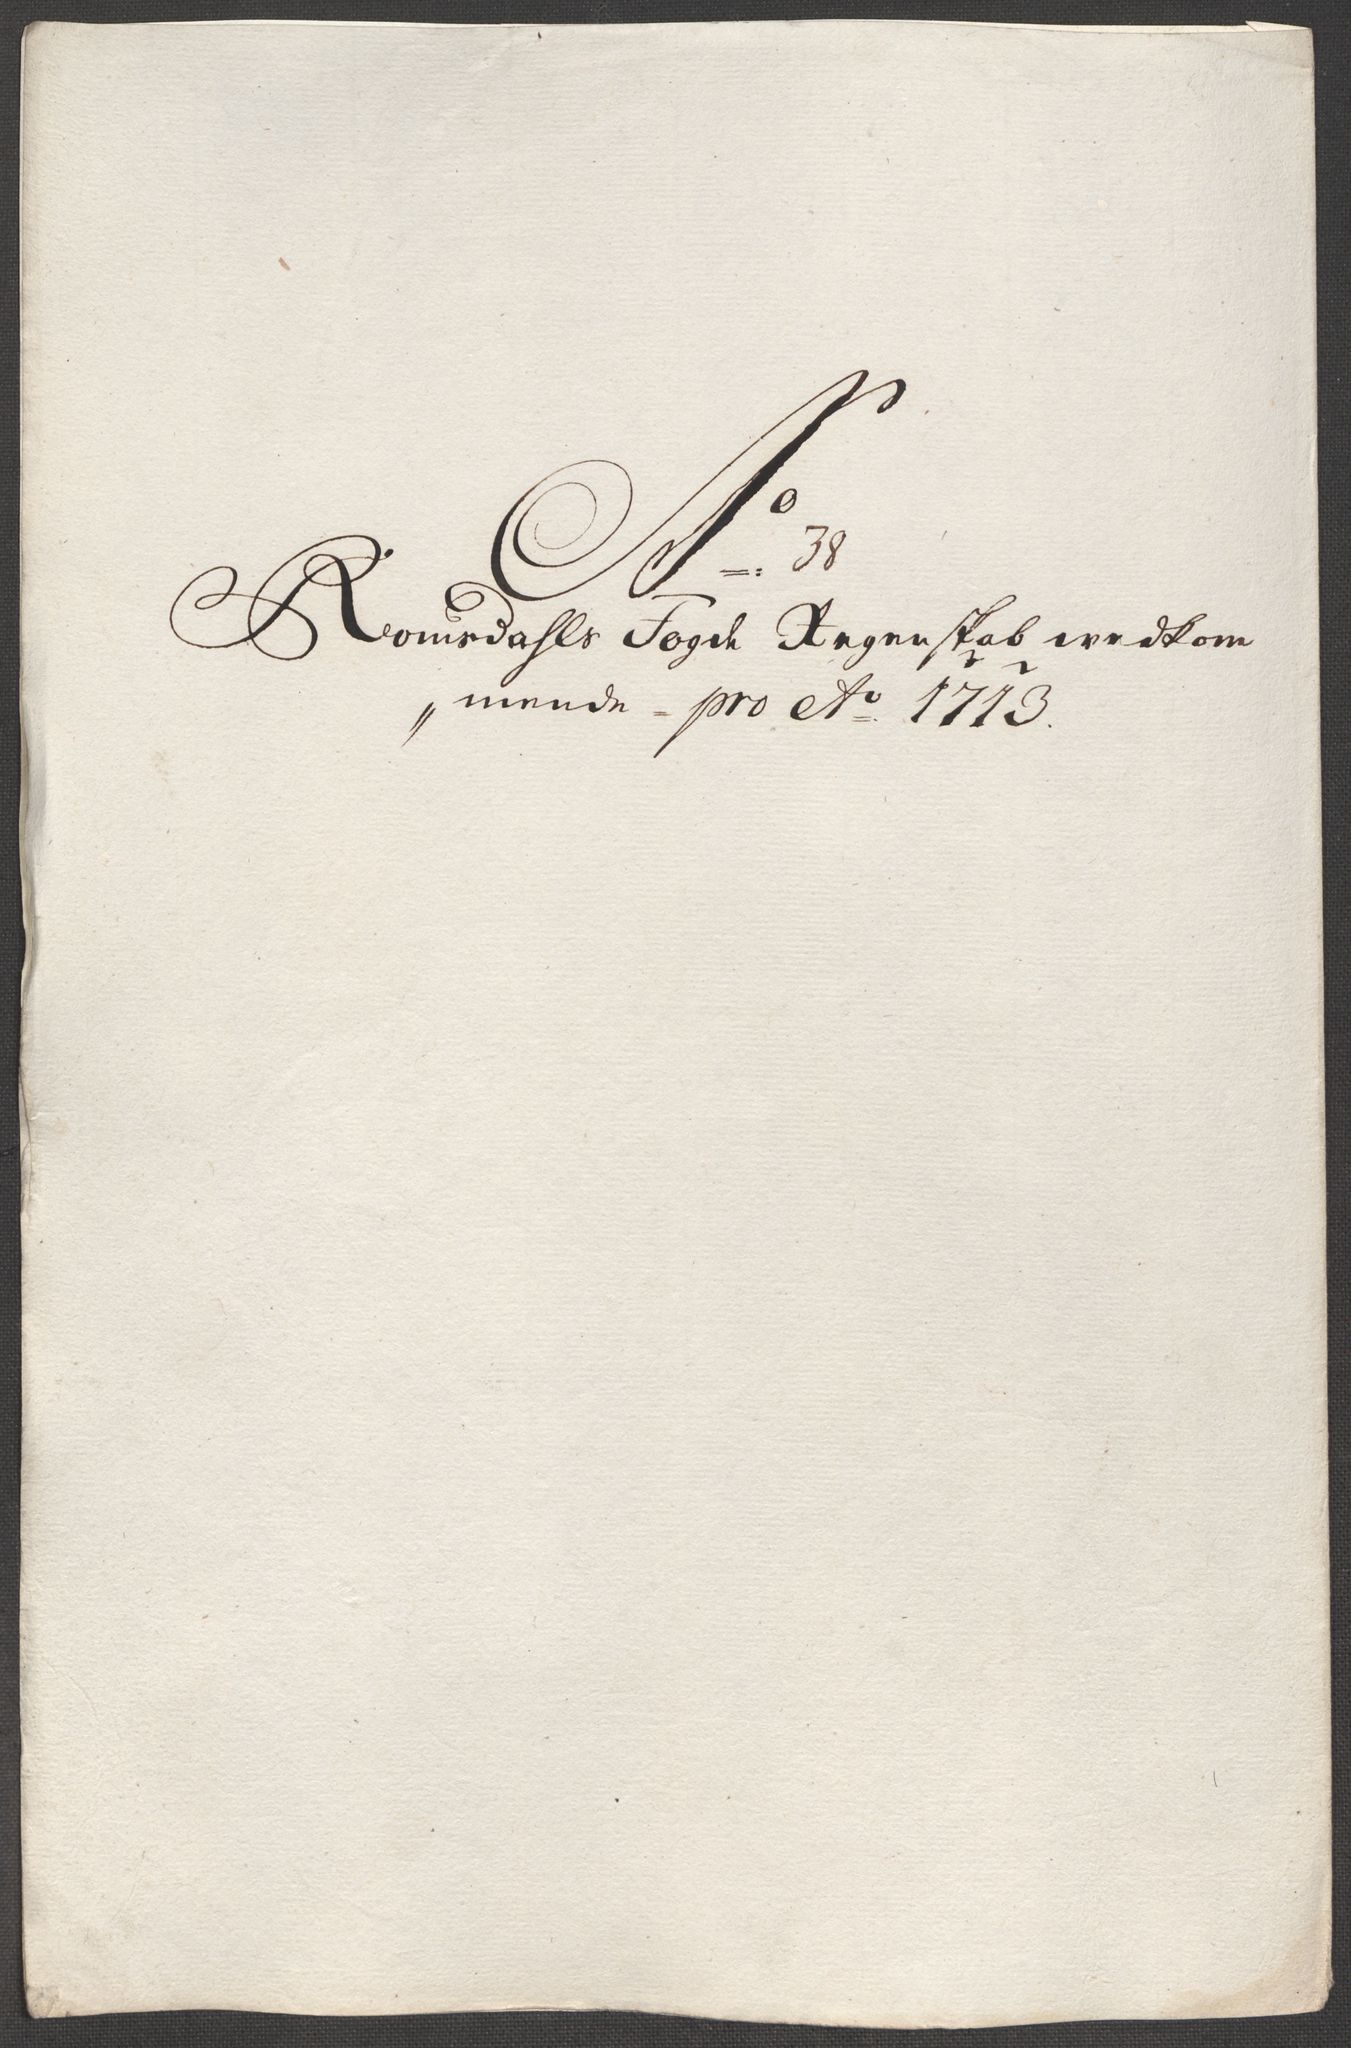 No 38
Romsdahls Fogde Regenskab wedkom
mende - pro Ao 1713.